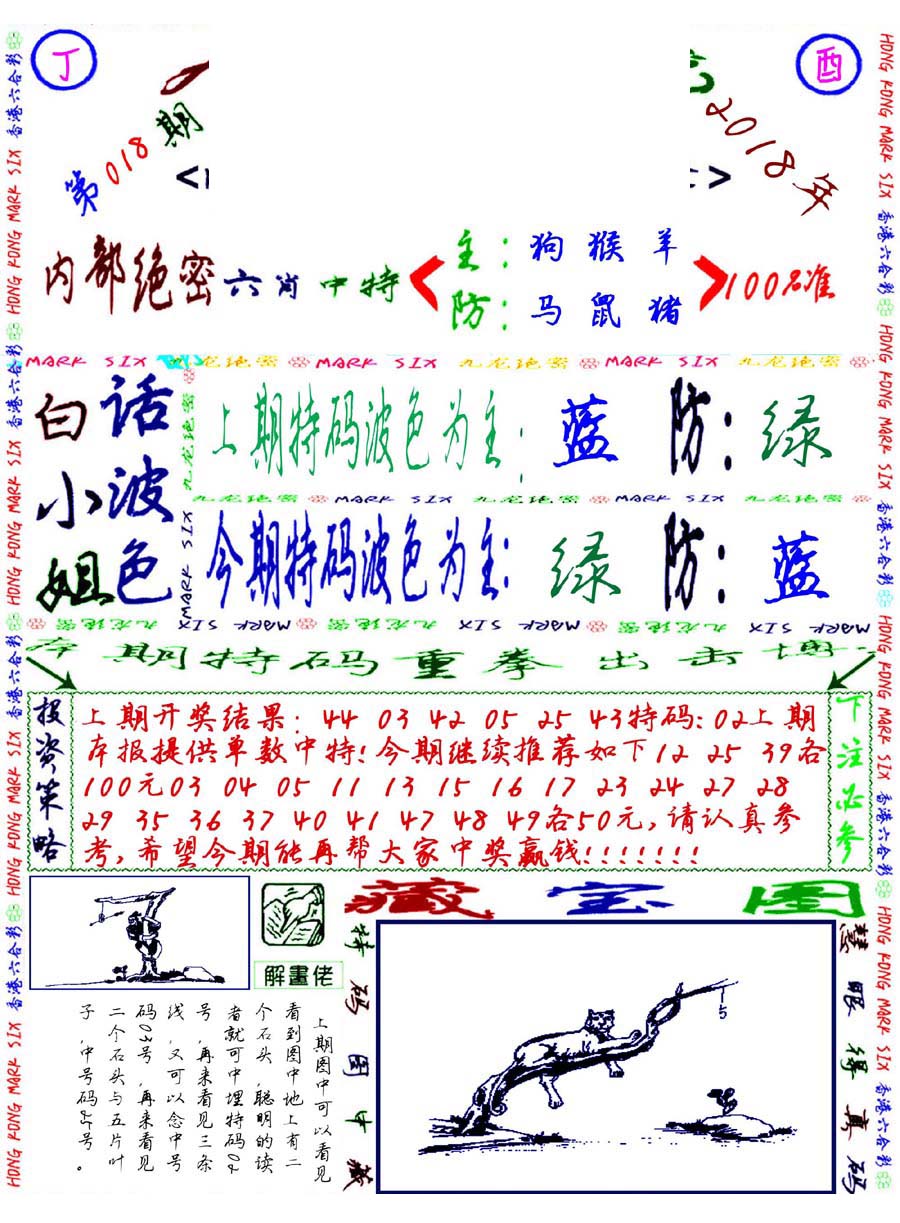 丁
酉
第018期
2018年
内部绝密六肖中特
主：狗猴羊
防：马鼠猪
100%准
白话小波姐色
上期特码波色为主：蓝 防：绿
今期特码波色为主：绿 防：蓝
期特码重拳出击
投资策略
上期开奖结果：44 03 42 05 25 43特码:02上期
本报提供单数中特!今期继续推荐如下12 25 39各
100元03 04 05 11 13 15 16 17 23 24 27 28
29 35 36 37 40 41 47 48 49各50元,请认真参
考,希望今期能再帮大家中奖赢钱!!!!!!!
下注必参
藏宝图
解畫佬
上期图中可以看见
看到图中地上有二
个石头,聪明的读
者就可中埋特码02
号,再来看见三条
线,又可以念中号
码03号,再来看见
二个石头与五片叶
子,中号码25号。
特码图中藏
慧眼得真码
5
HONG KONG MARK SIX 香港六合彩
HONG KONG MARK SIX 香港六合彩
MARK SIX 九龙绝密 MARK SIX 九龙绝密 MARK SIX 九龙绝密
九龙绝密 MARK SIX 九龙绝密 MARK SIX 九龙绝密